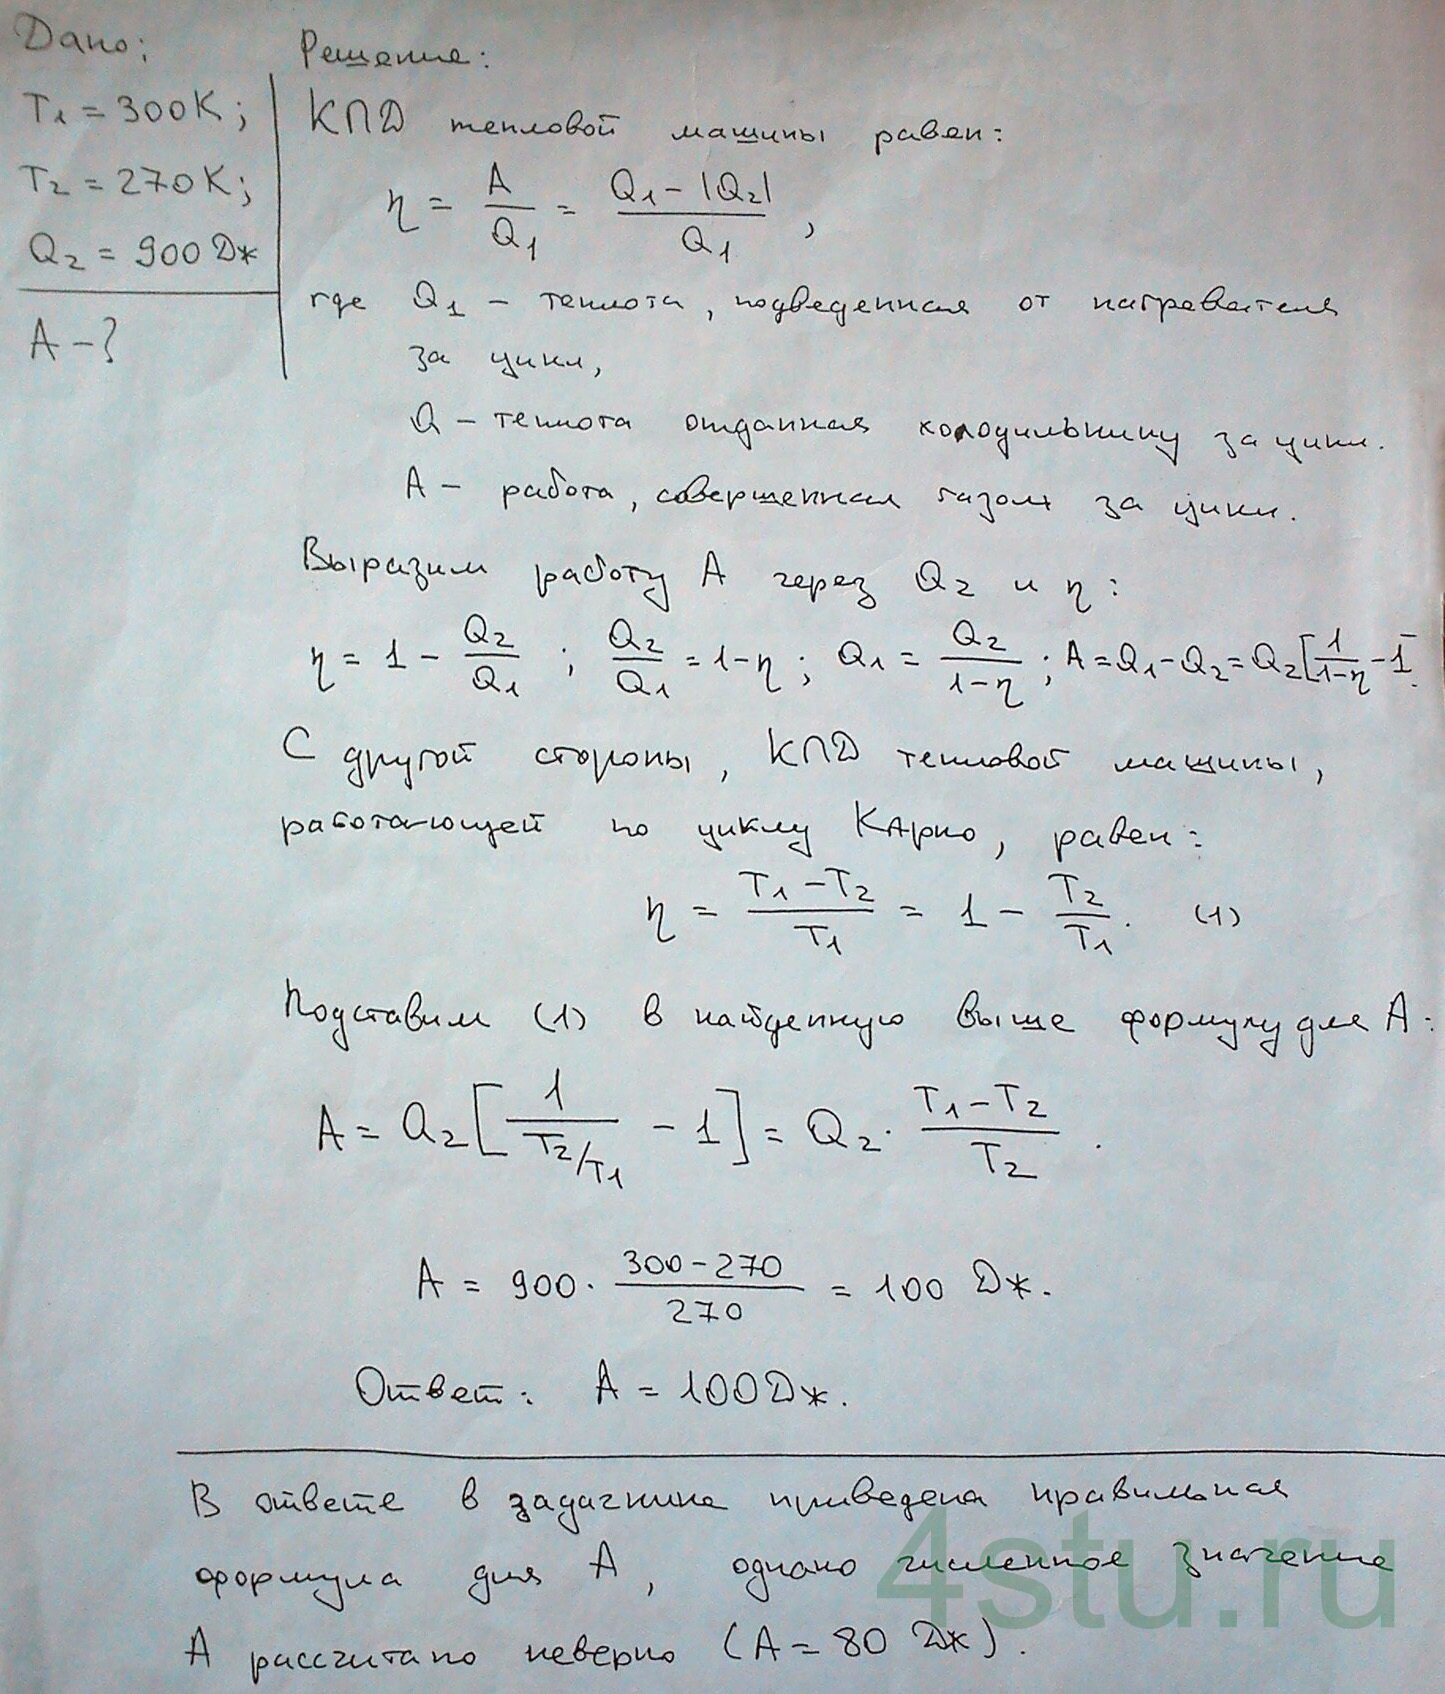 Дано:
T₁ = 300К;
T₂ = 270К;
Q₂ = 900 Дж
A – ?
Решение:
КПД тепловой машины равен:
η = A/Q₁ = (Q₁ – |Q₂|)/Q₁ ,
где Q₁ – теплота, подведенная от нагревателя
за цикл,
Q – теплота отданная холодильнику за цикл.
A – работа, совершенная газом за цикл.
Выразим работу A через Q₂ и η:
η = 1 – Q₂/Q₁ ; Q₂/Q₁ = 1–η ; Q₁ = Q₂/(1–η) ; A = Q₁–Q₂ = Q₂[1/(1–η) – 1
С другой стороны, КПД тепловой машины,
работающей по циклу КАрно, равен:
η = (T₁ – T₂)/T₁ = 1 – T₂/T₁. (1)
Подставим (1) в найденную выше формулу для A:
A = Q₂[1/(T₂/T₁) – 1] = Q₂ · (T₁–T₂)/T₂ .
A = 900 · (300–270)/270 = 100 Дж.
Ответ: A = 100 Дж.
В ответе в задачнике приведена правильная
формула для A, однако численное значение
A рассчитано неверно (A = 80 Дж).
4stu.ru